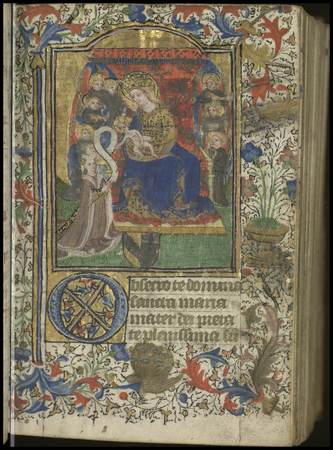 Obsecro te domina
sancta maria
mater dei pieta
te plenissima